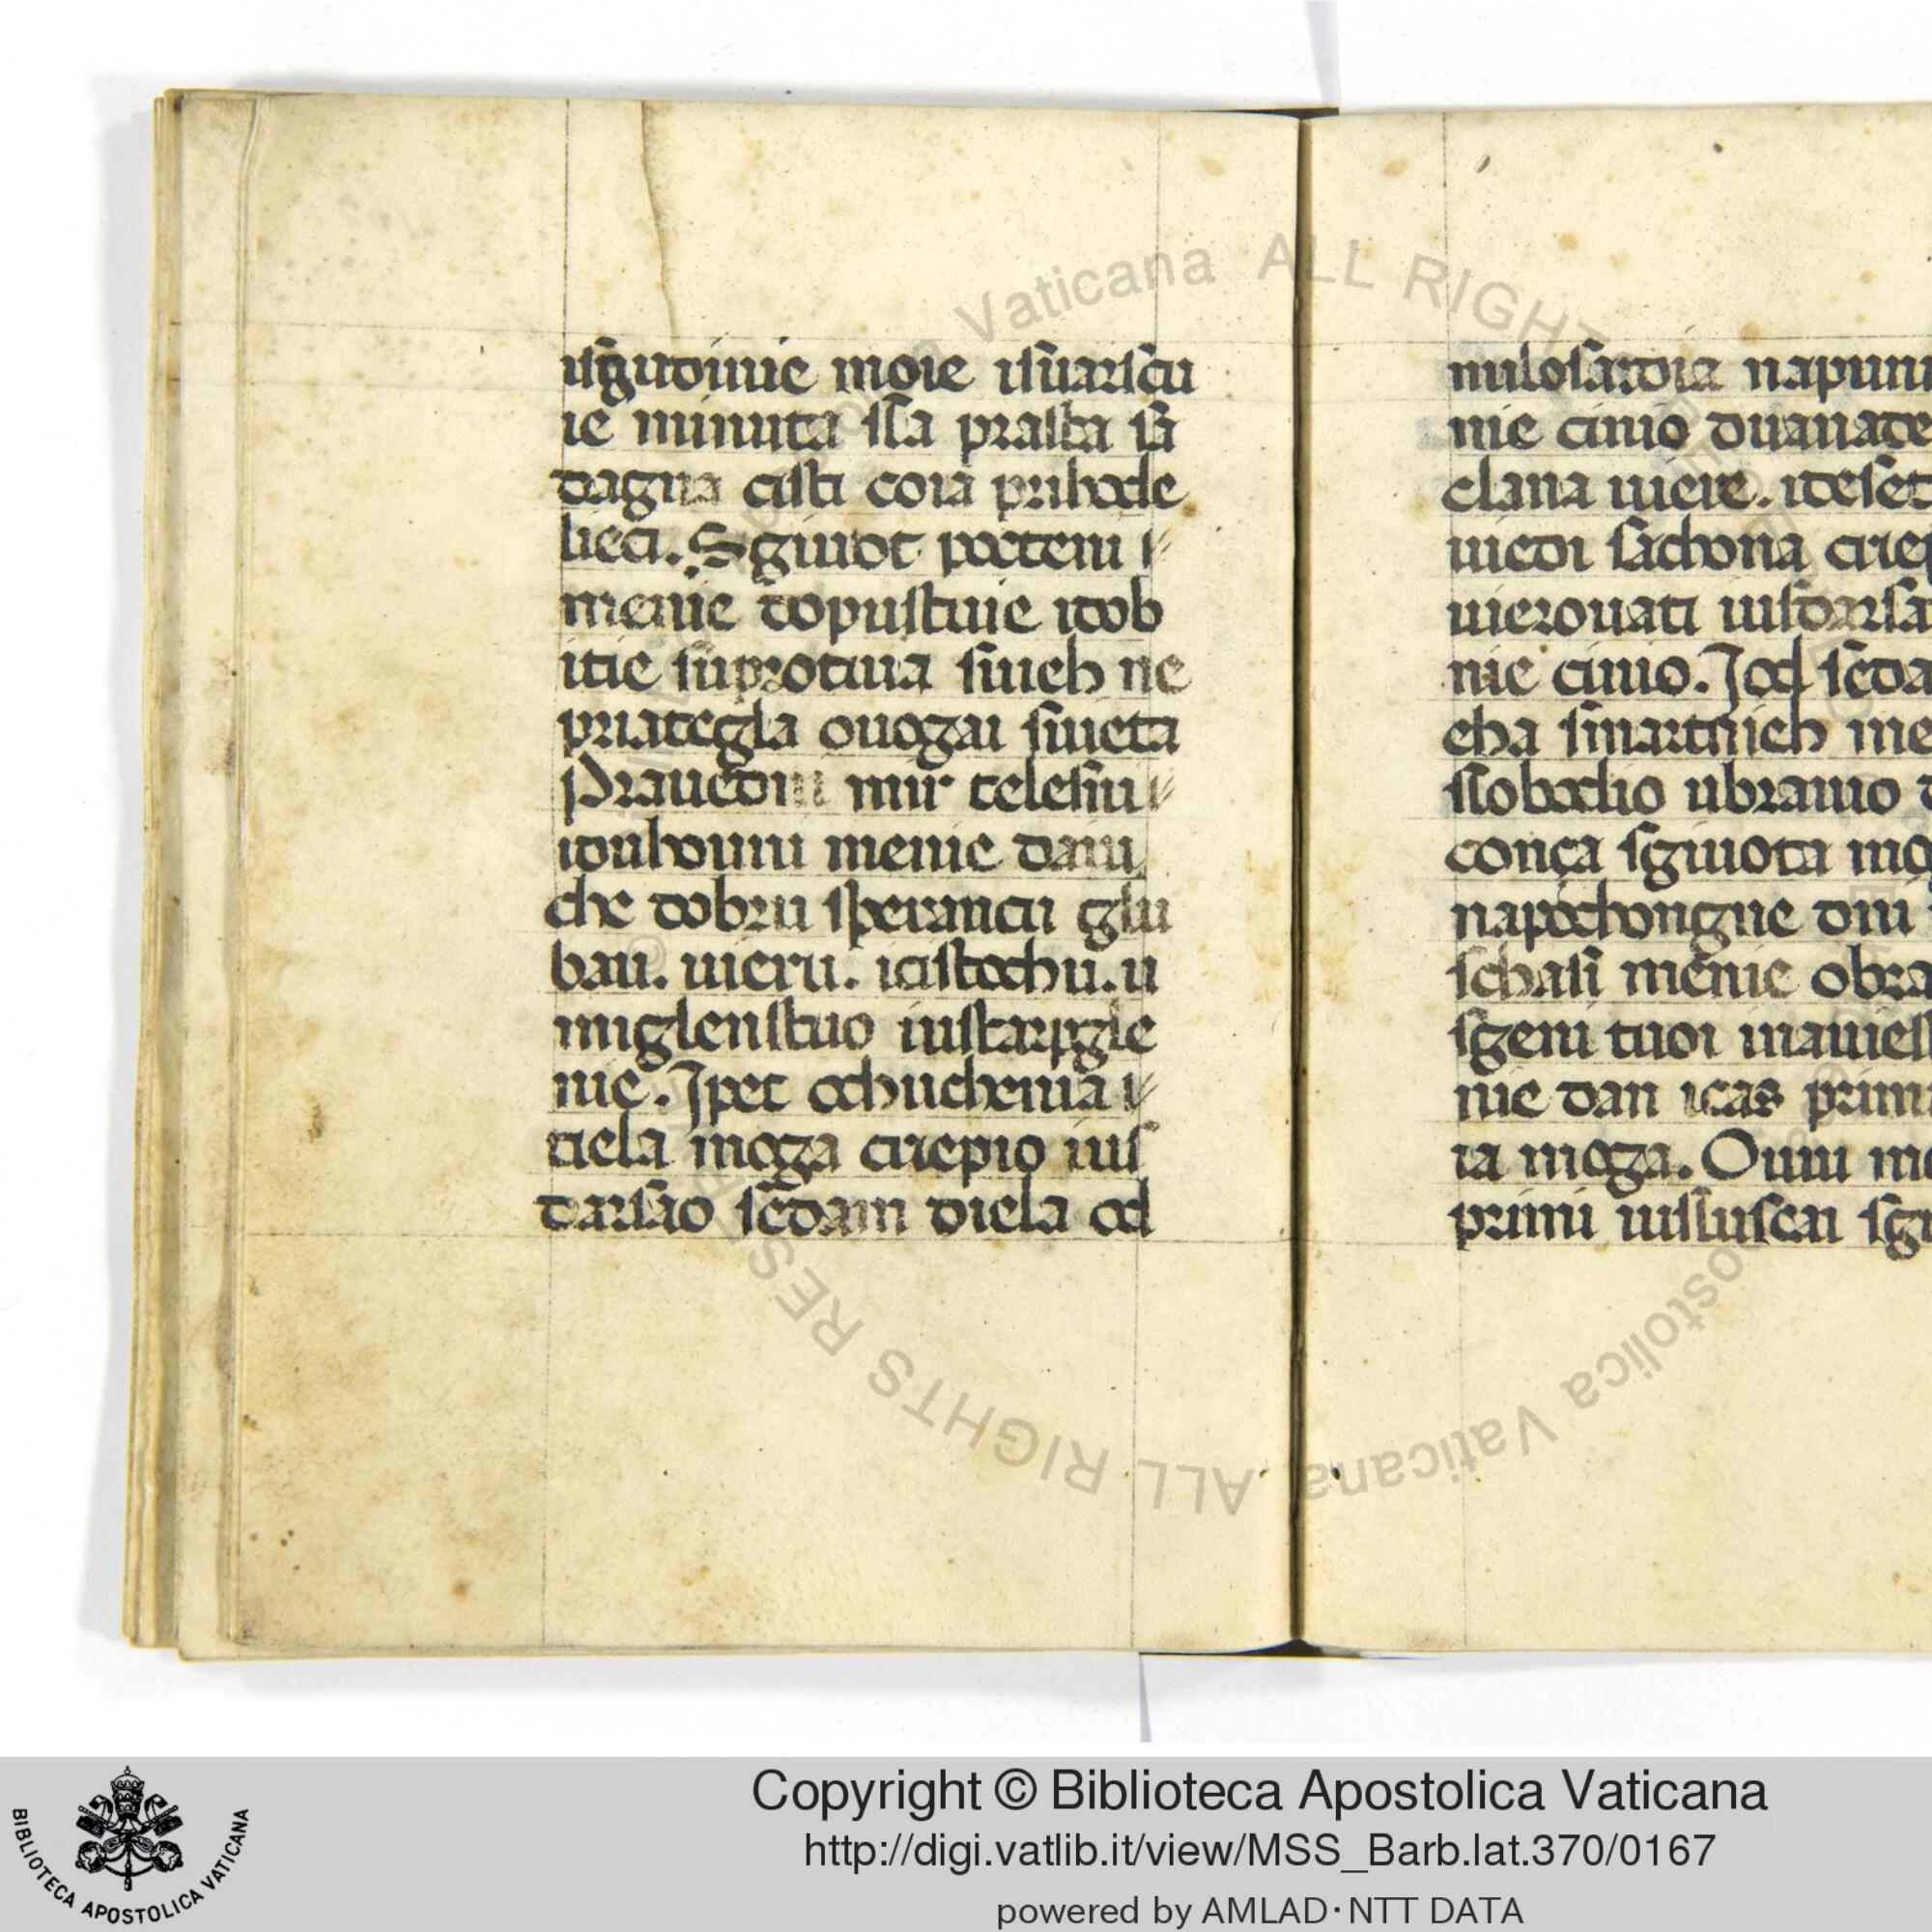 isgudinie moie isuarscu
ie minuta ssa prasta sa
dagna cisti coia prihode
lieci. Sgiuot pocteni
menie dopustuie idob
itie suprotiua suieh ne
priategla ouogai suieta
Prauedni mir telesui
iduhouni menie daiu
che dobru sperancu glu
bau. uieru. icistochu. u
miglenstuo iustarpgle
nie. Ipet odhuchenia
tiela moga criepio ius
darsao scdam diela od
milosardia napuni
nie cinio duanade
clana uiere. idesed
uiedi sachona criep
uierouati iusdarsa
nie cinio. Iod scda
eha smartnieh me
slobodio ubrauio d
conça sgiuota mo
napochongne dni
schasi menie obra
sgeni tuoi inauies
nie dan icas primi
ia moga. Ouiu mo
primi iusluscai sgi
Vaticana ALL RIGHT
ALL RIGHTS RES
Apostolica Vaticana
BIBLIOTECA APOSTOLICA VATICANA
Copyright © Biblioteca Apostolica Vaticana
http://digi.vatlib.it/view/MSS_Barb.lat.370/0167
powered by AMLAD·NTT DATA